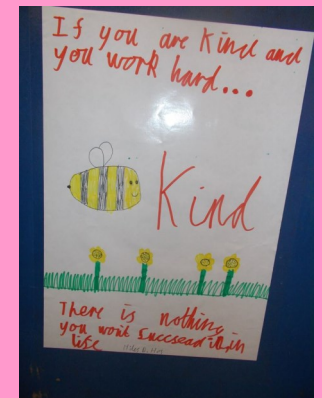 If you are Kind and
you work hard...
Kind
There is nothing
you won't Succsead in in
life